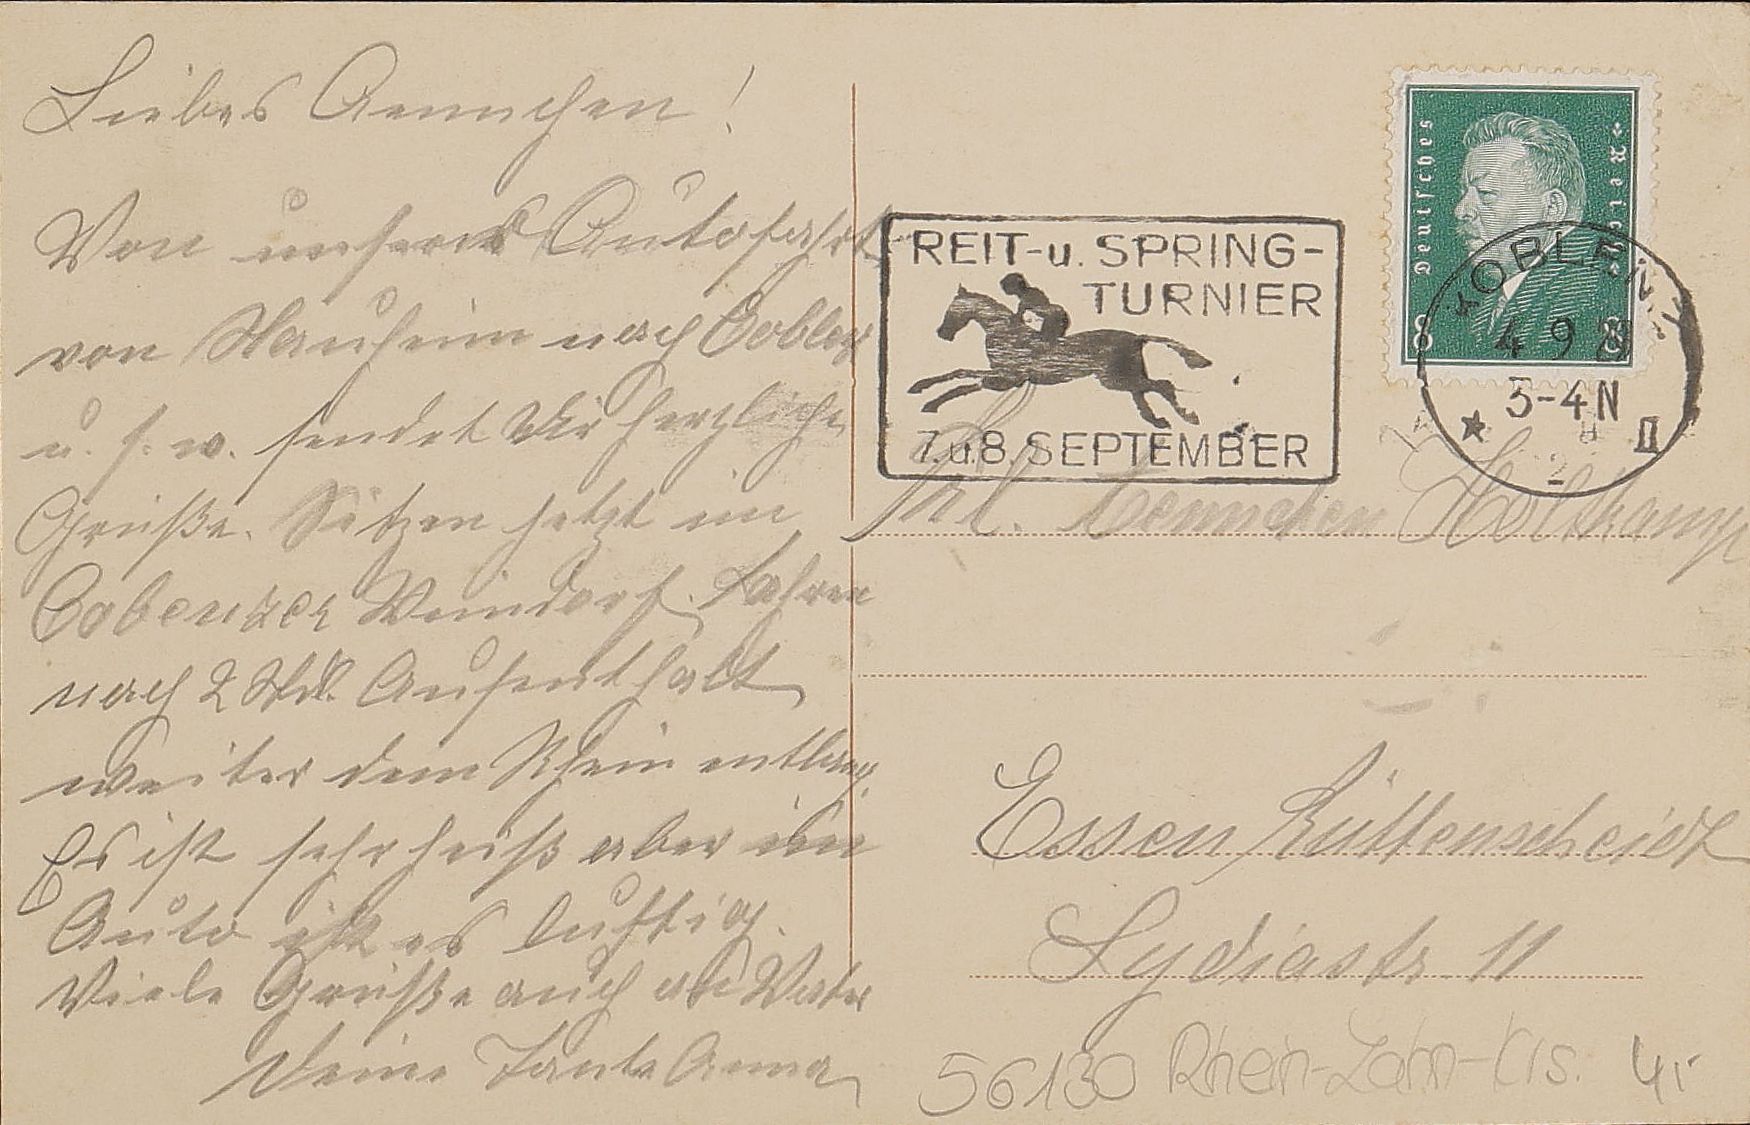 Liebes Aennchen!
Von unserer Autofahrt
von Nauheim nach Coblenz
u. s. w. sendet Dir herzliche
Grüße. Sitzen jetzt im
Cobenzer Weindorf. Fahren
nach 2 Std. Aufenthalt
weiter dem Rhein entlang.
Es ist sehr heiß aber im
Auto ist es luftig.
Viele Grüße auch an Vater
Deine Tante Anna
REIT-u. SPRING-
TURNIER
7.u.8. SEPTEMBER
Deutsches Reich
8 8
KOBLENZ
4 9 29
3-4 N
* 2 II
Frl. Aennchen Holtkamp
Essen Rüttenscheidt
Lydiastr. 11
56130 Rhein-Lahn-Krs. 4,-